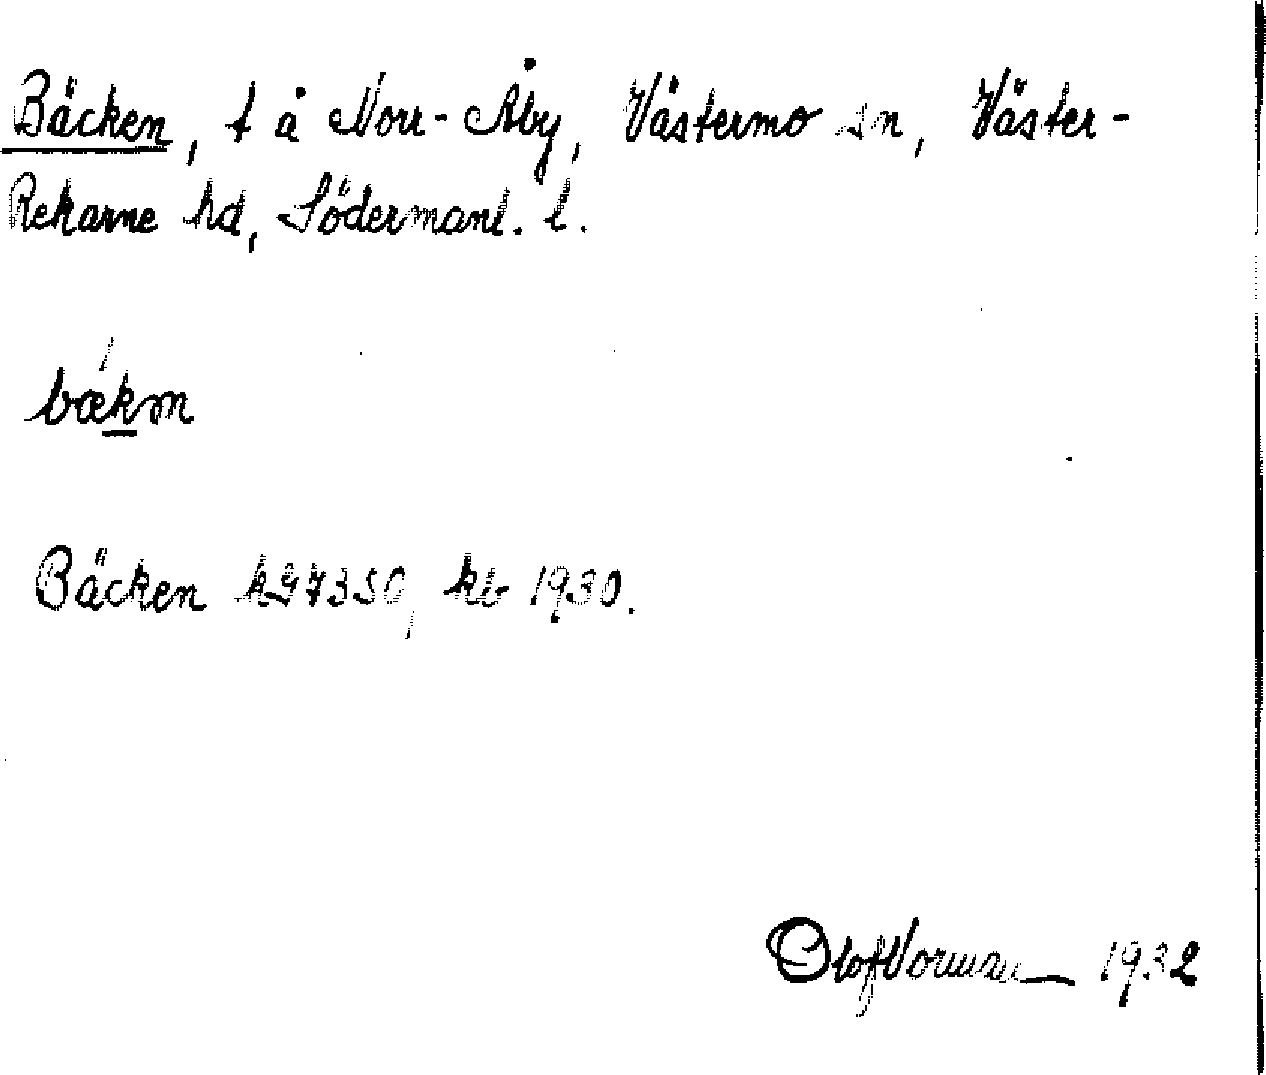 Bäcken, t å Norr-Åby, Västermo sn, Väster-
Rekarne hd, Södermanl. l.
bækm
Bäcken k97350, kb 1930.
Olof Vorman 1932